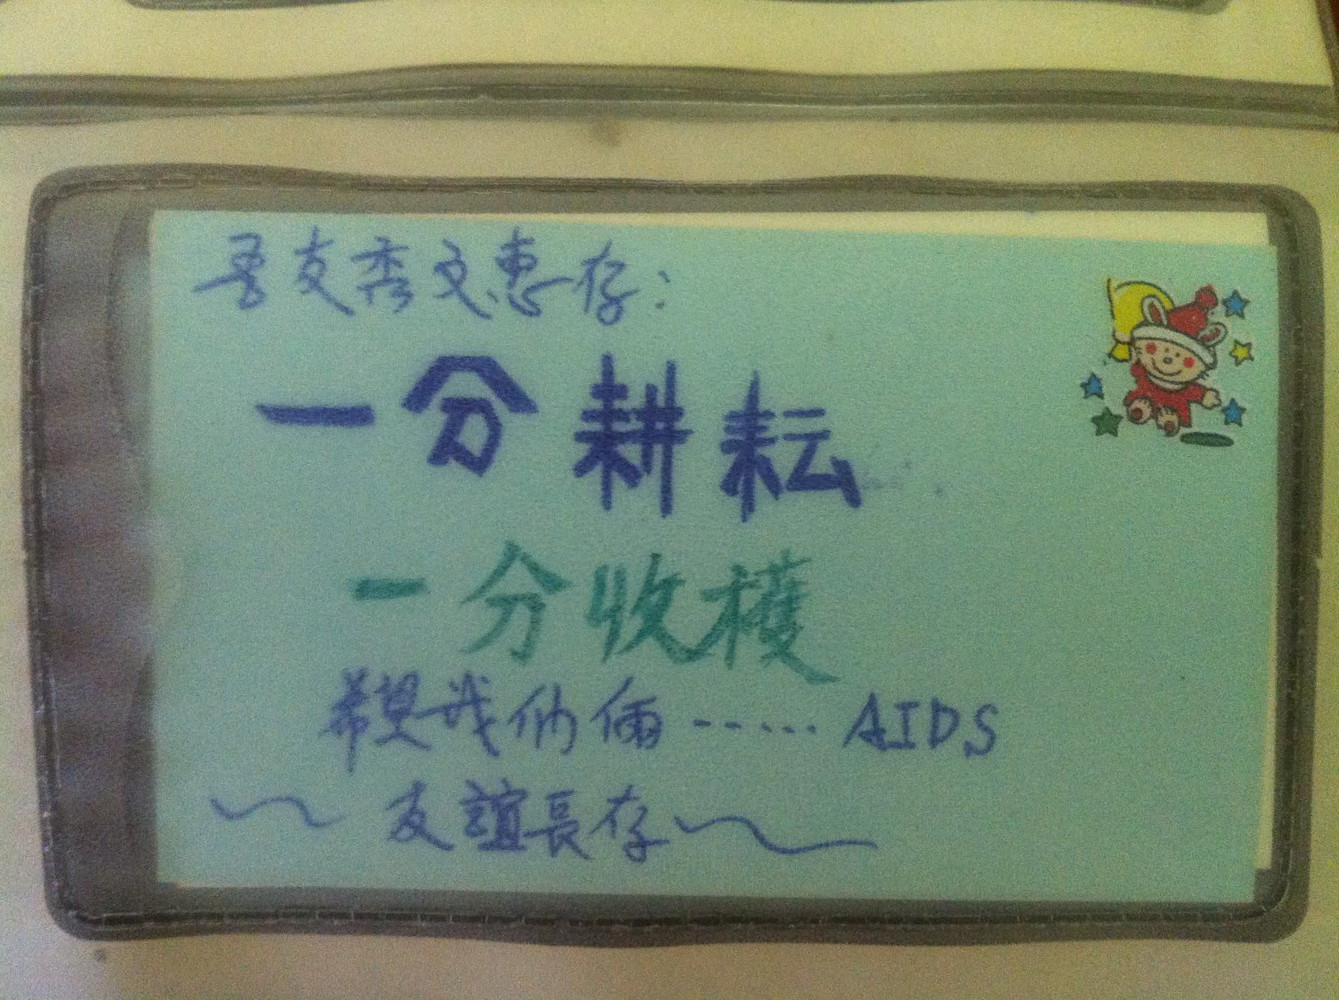 吾友秀文惠存:
一分耕耘
一分收穫
希望我们倆------AIDS
~友誼長存~